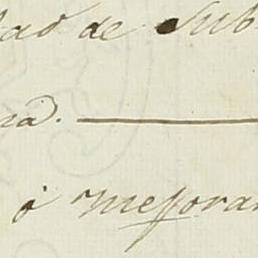 lad de Sub
ad.
ó mejorar